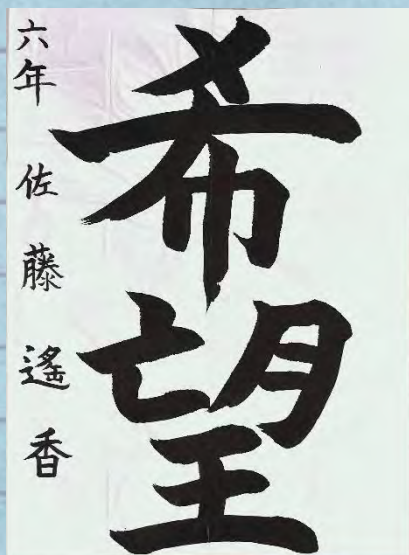 希望
六年 佐藤遙香